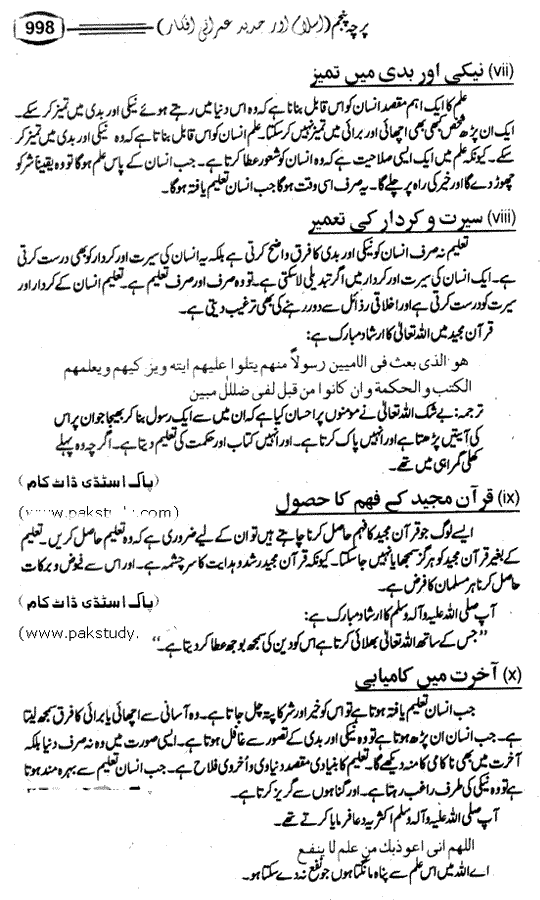 998 پرچہ پنجم (اسلام اور جدید عمرانی افکار)
(vii) نیکی اور بدی میں تمیز
علم کا ایک اہم مقصد انسان کو اس قابل بنانا ہے کہ وہ اس دنیا میں رہتے ہوئے نیکی اور بدی میں تمیز کر سکے۔
ایک ان پڑھ شخص کبھی بھی اچھائی اور برائی میں تمیز نہیں کر سکتا۔ علم انسان کو اس قابل بناتا ہے کہ وہ نیکی اور بدی میں تمیز کر
سکے۔ کیونکہ علم میں ایک ایسی صلاحیت ہے کہ وہ انسان کو شعور عطا کرتا ہے۔ جب انسان کے پاس علم ہو گا تو وہ یقیناً شر کو
چھوڑ دے گا اور خیر کی راہ پر چلے گا۔ یہ صرف اسی وقت ہو گا جب انسان تعلیم یافتہ ہو گا۔
(viii) سیرت و کردار کی تعمیر
تعلیم نہ صرف انسان کو نیکی اور بدی کا فرق واضح کرتی ہے بلکہ یہ انسان کی سیرت اور کردار کو بھی درست کرتی
ہے۔ ایک انسان کی سیرت اور کردار میں اگر تبدیلی لا سکتی ہے۔ تو وہ صرف اور صرف تعلیم ہے۔ تعلیم انسان کے کردار اور
سیرت کو درست کرتی ہے اور اخلاقی رذائل سے دور رہنے کی بھی ترغیب دیتی ہے۔
قرآن مجید میں اللہ تعالیٰ کا ارشاد مبارک ہے:
هو الذی بعث فی الامیین رسولاً منهم یتلوا علیهم ایته ویزکیهم ویعلمهم
الکتب والحکمة وان کانوا من قبل لفی ضللٰ مبین
ترجمہ: بے شک اللہ تعالیٰ نے مؤمنوں پر احسان کیا ہے کہ ان میں سے ایک رسول بنا کر بھیجا جو ان پر اس
کی آیتیں پڑھتا ہے اور انہیں پاک کرتا ہے۔ اور انہیں کتاب اور حکمت کی تعلیم دیتا ہے۔ اگرچہ وہ پہلے
کھلی گمراہی میں تھے۔
(پاک اسٹڈی ڈاٹ کام)
(www.pakstudy.com)
(ix) قرآن مجید کے فہم کا حصول
ایسے لوگ جو قرآن مجید کا فہم حاصل کرنا چاہتے ہیں تو ان کے لیے ضروری ہے کہ وہ تعلیم حاصل کریں۔ تعلیم
کے بغیر قرآن مجید کو ہرگز سمجھا یا نہیں جا سکتا۔ کیونکہ قرآن مجید رشد و ہدایت کا سرچشمہ ہے۔ اور اس سے فیوض و برکات
حاصل کرنا ہر مسلمان کا فرض ہے۔
(پاک اسٹڈی ڈاٹ کام)
آپ صلی اللہ علیہ وآلہ وسلم کا ارشاد مبارک ہے:
(www.pakstudy.
”جس کے ساتھ اللہ تعالیٰ بھلائی کرتا ہے اس کو دین کی سمجھ بوجھ عطا کر دیتا ہے۔“
(x) آخرت میں کامیابی
جب انسان تعلیم یافتہ ہوتا ہے تو اس کو خیر اور شر کا پتہ چل جاتا ہے۔ وہ آسانی سے اچھائی یا برائی کا فرق سمجھ لیتا
ہے۔ جب انسان ان پڑھ ہوتا ہے تو وہ نیکی اور بدی کے تصور سے غافل ہوتا ہے۔ ایسی صورت میں وہ نہ صرف دنیا بلکہ
آخرت میں بھی ناکامی کا منہ دیکھے گا۔ تعلیم کا بنیادی مقصد دنیاوی و اخروی فلاح ہے۔ جب انسان تعلیم سے بہرہ مند ہوتا
ہے تو وہ نیکی کی طرف راغب رہتا ہے۔ اور گناہوں سے گریز کرتا ہے۔
آپ صلی اللہ علیہ وآلہ وسلم اکثر یہ دعا فرمایا کرتے تھے۔
اللهم انی اعوذبک من علم لا ینفع
اے اللہ میں اس علم سے پناہ مانگتا ہوں جو نفع نہ دے سکتا ہو۔